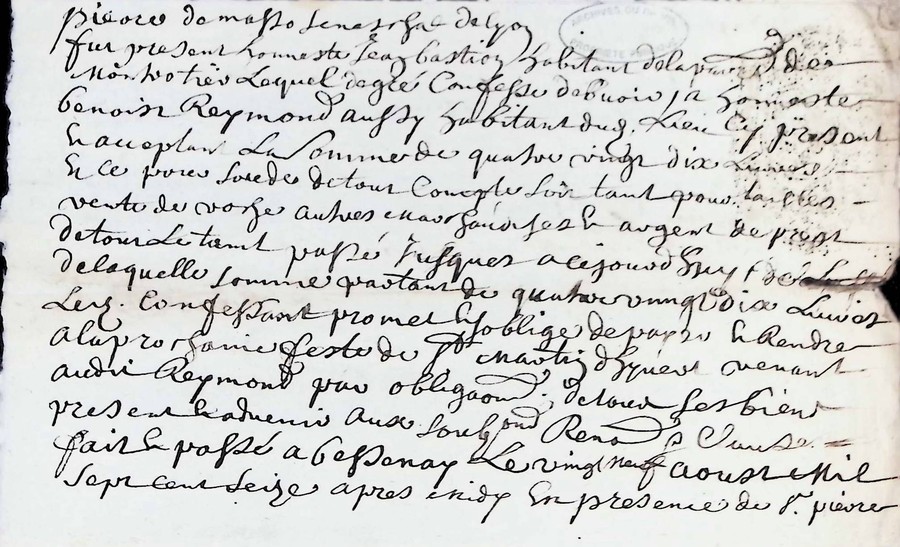 pierre de masso seneschal de lyon
fut present honneste Jean bastion habitant de la parr. de
Montrotier Lequel de gre Confesse debvoir a honneste
benoist Reymond aussy habitant dud. Lieu Cy present
Et acceptant La Somme de quatre vingt dix Livres
Et ce pour Solde de tout Compte Soit tant pour
vente de vache autres marchandises Et argent de prest
de tout Le temps passé Jusques a cejourd'huy
de laquelle somme partant de quatre vingt dix Livres
Led. Confessant promet Et s'oblige de payer Et Rendre
a la prochaine feste de St Martin d'hyvert venant
audit Reymond par obligaon de tous ses biens
present Et advenir aux soubzons Renaon Clause
fait Et passé a bessenay Le vingt neuf aoust Mil
Sept cent Seize apres midy En presence de Sr. pierre